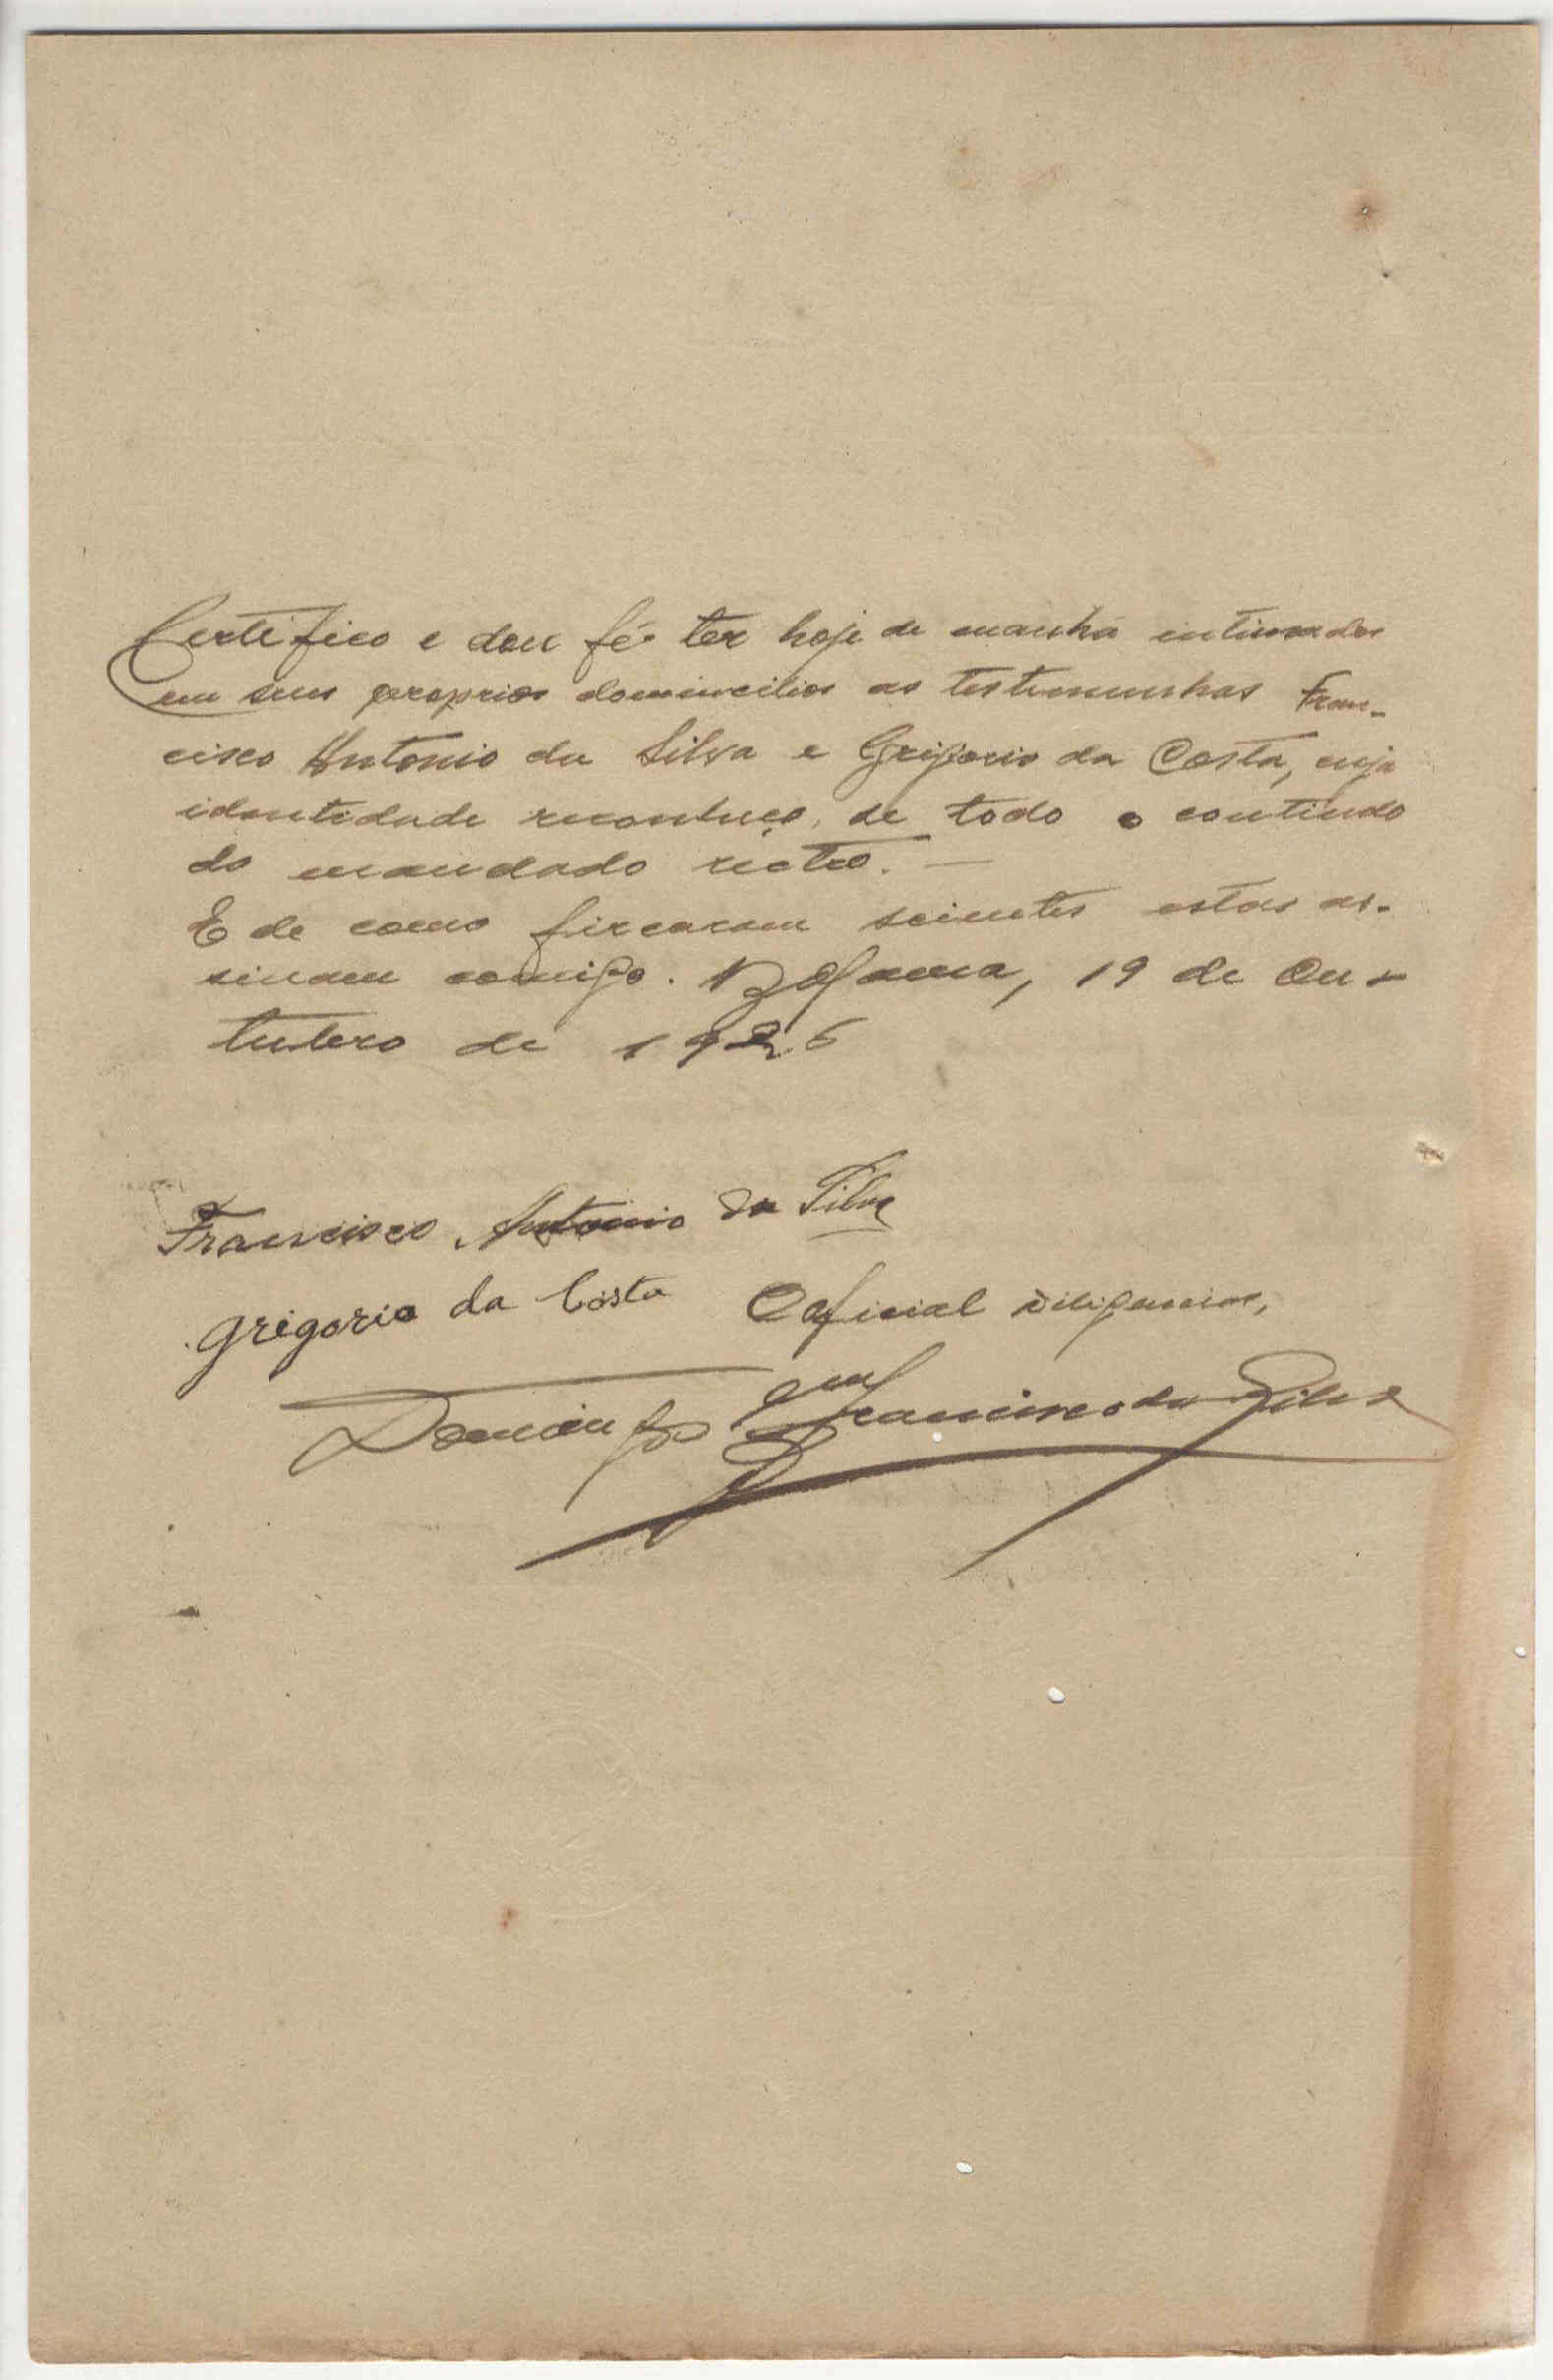 Certifico e dou fé ter hoje de manhã intimados
em seus proprios domincilios as testemunhas Fran-
cisco Antonio da Silva e Grigorio da Costa, cuja
identidade reconheço, de todo o contiudo
do mandado réctro. —
E de como fircaram scientes estas as-
sinam comigo. Bolama, 19 de Ou-
tubro de 1926
Francisco Antonio da Silva
Grigorio da Costa O oficial diligencias,
Domingos Francisco da Silva